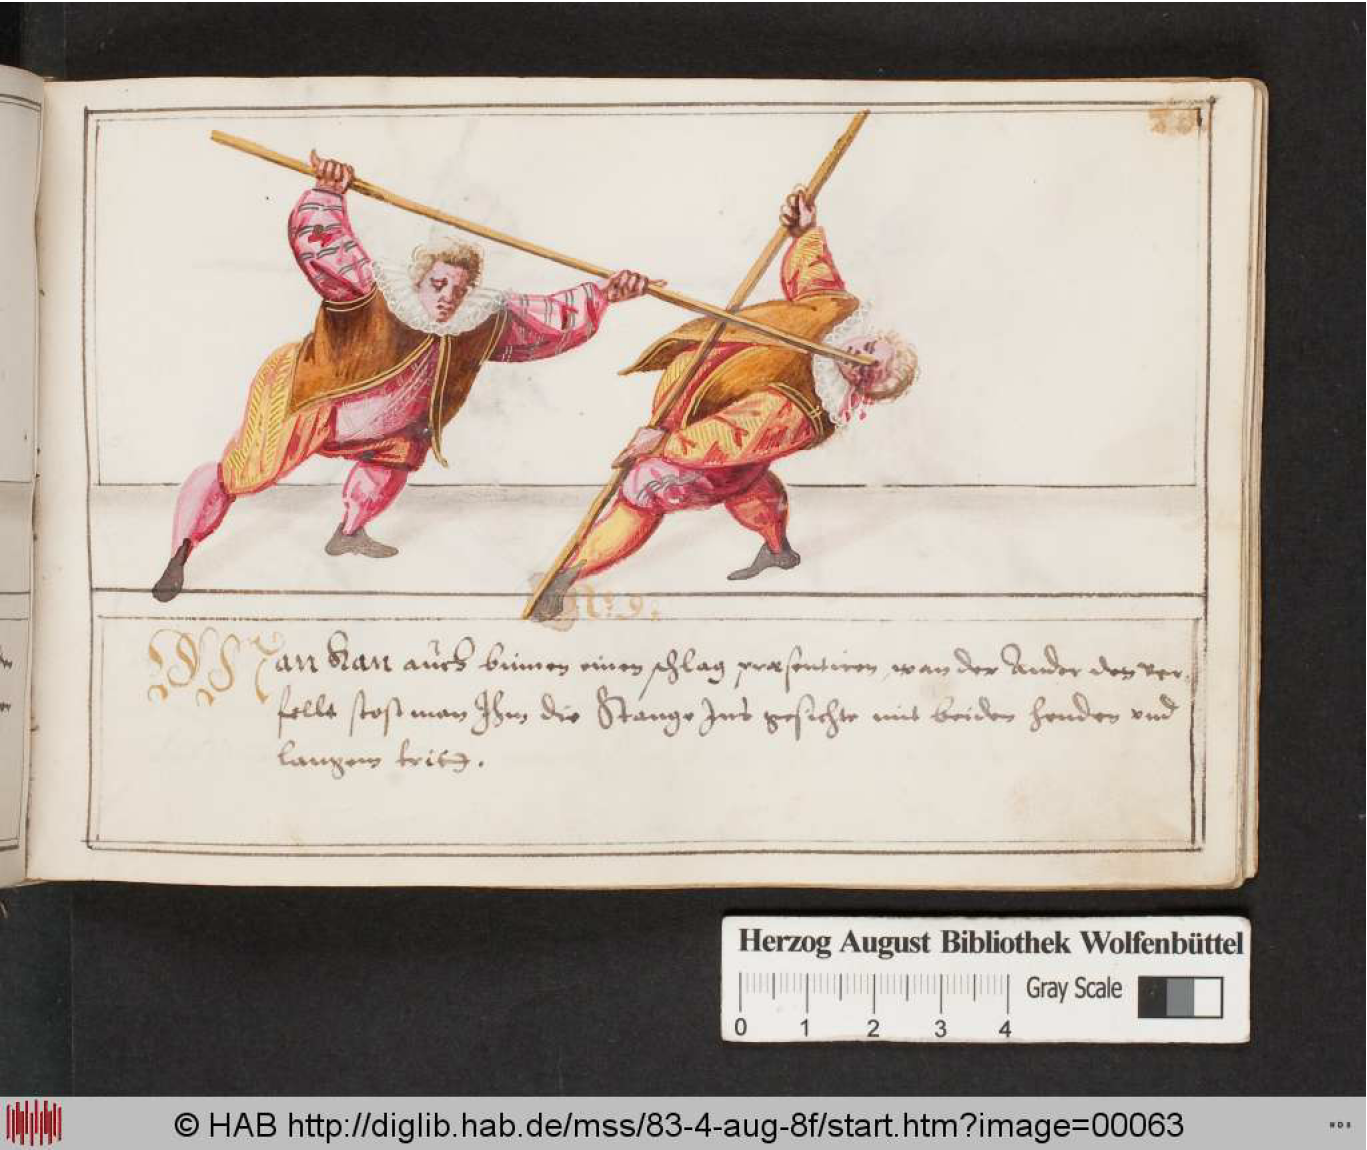 No 9.
Man kan auch binnen einen schlag præsentiren, wan der Ander den ver-
fellt stost man Ihm die Stange Ins gesichte mit beiden henden vnd
langem tritt.
Herzog August Bibliothek Wolfenbüttel
0 1 2 3 4
Gray Scale
© HAB http://diglib.hab.de/mss/83-4-aug-8f/start.htm?image=00063